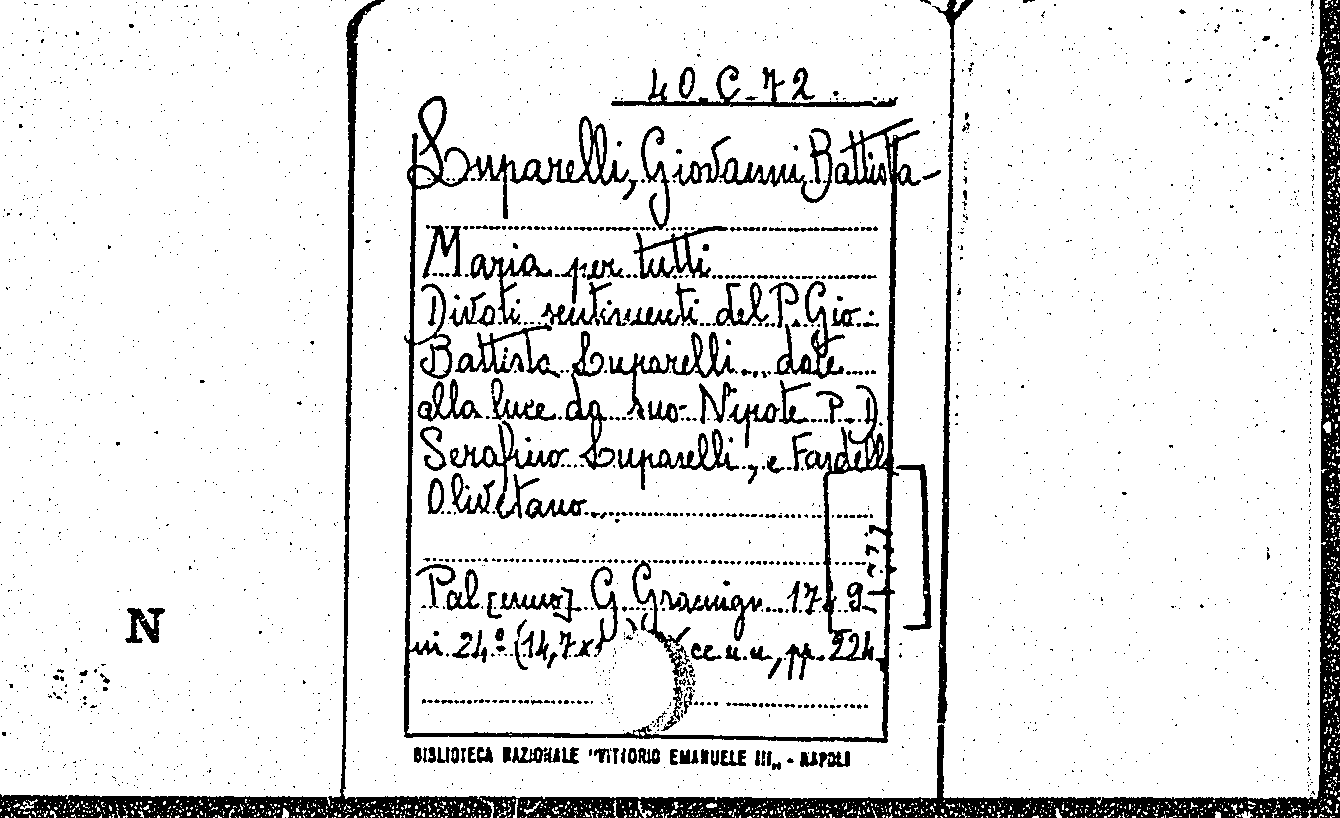 40.C.72.
Luparelli, Giovanni Battista-
Maria per tutti
Divoti sentimenti del P. Gio:
Battista Luparelli... date
alla luce da suo Nipote P. D.
Serafino Luparelli, e Fardella
Olivetano...
Pal[ermo] G Gramign.. 1749
in 24.° (14,7x cc.n.n., pp. 224.
N
BIBLIOTECA NAZIONALE "VITTORIO EMANUELE III" - NAPOLI